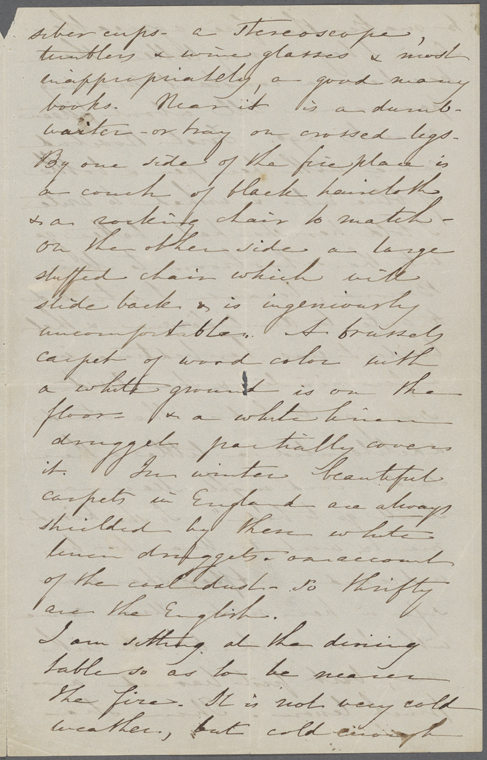 silver cups - a stereoscope,
tumblers & wine glasses & most
inappropriately, a good many
books. Near it is a dumb-
waiter - or tray on crossed legs -
By one side of the fire place is
a couch of black haircloth
& a rocking chair to match -
on the other side a large
stuffed chair which will
slide back & is ingeniously
uncomfortable. A brussels
carpet of wood color with
a white ground is on the
floor - & a white linen
drugget partially covers
it. In winter beautiful
carpets in England are always
shielded by these white
linen druggets - on account
of the coal dust - so thrifty
are the English.
I am sitting at the dining
table so as to be nearer
the fire. It is not very cold
weather, but cold enough